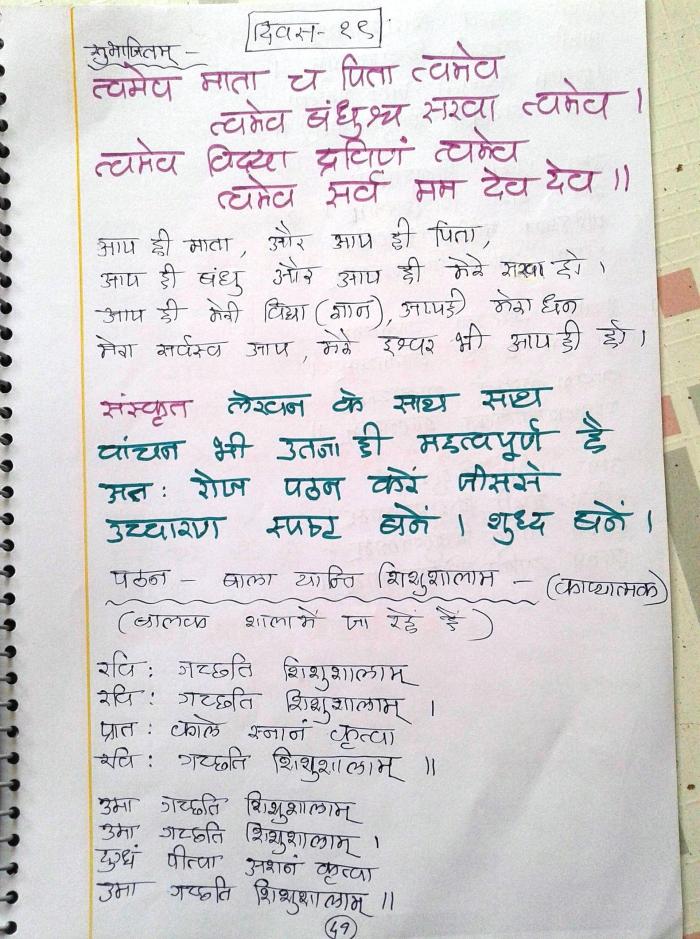 दिवस - १९
सुभाषितम् -
त्वमेव माता च पिता त्वमेव
त्वमेव बंधुश्च सखा त्वमेव ।
त्वमेव विद्या द्रविणं त्वमेव
त्वमेव सर्वं मम देव देव ॥
आप ही माता, और आप ही पिता,
आप ही बंधु और आप ही मेरे सखा हो ।
आप ही मेरी विद्या (ज्ञान), आपही मेरा धन
मेरा सर्वस्व आप, मेरे इश्वर भी आप ही हो ।
संस्कृत लेखन के साथ साथ
वांचन भी उतना ही महत्वपूर्ण है
अतः रोज पठन करें जीससे
उच्चारण स्पष्ट बनें । शुध्द बनें ।
पठन - बाला यान्ति शिशुशालाम - (काव्यात्मक)
(बालक शालामें जा रहें हैं)
रविः गच्छति शिशुशालाम्
रविः गच्छति शिशुशालाम् ।
प्रातः काले स्नानं कृत्वा
रविः गच्छति शिशुशालाम् ॥
उमा गच्छति शिशुशालाम्
उमा गच्छति शिशुशालाम् ।
दुग्धं पीत्वा अशनं कृत्वा
उमा गच्छति शिशुशालाम् ॥